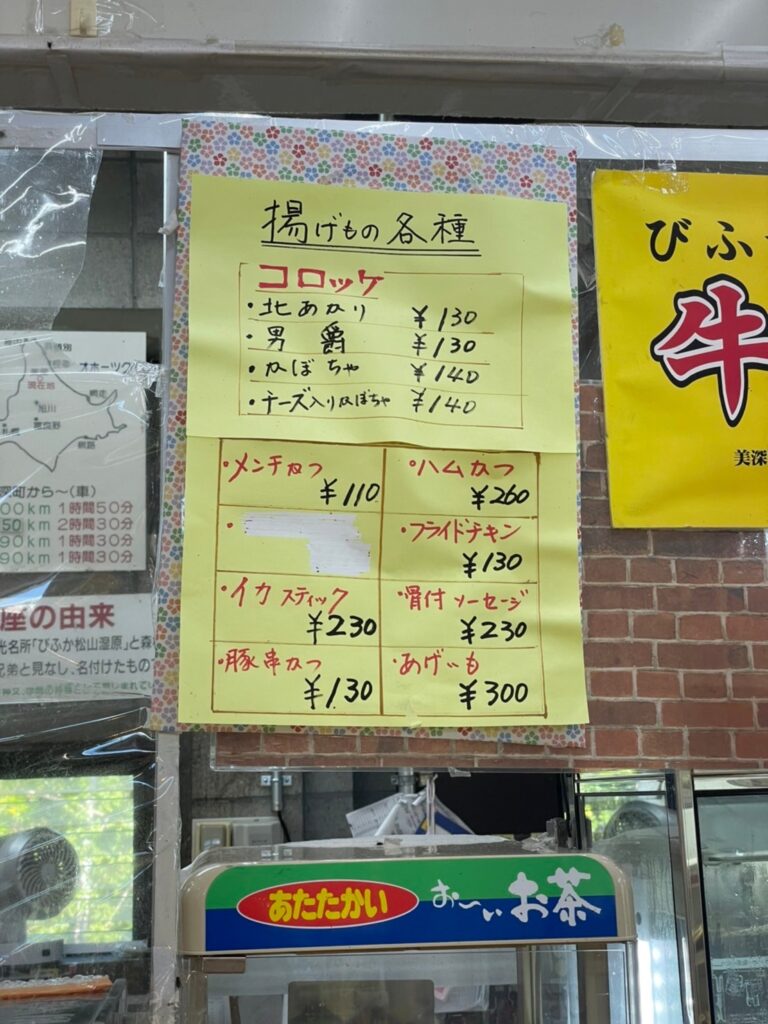 揚げもの各種
コロッケ
・北あかり ¥130
・男爵 ¥130
・かぼちゃ ¥140
・チーズ入りかぼちゃ ¥140
・メンチかつ
¥110
・ハムかつ
¥260
・
・フライドチキン
¥130
・イカスティック
¥230
・骨付ソーセージ
¥230
・豚串かつ
¥130
・あげいも
¥300
びふ
牛
美深
オホーツク
現在地
網走
旭川
富良野
釧路
町から〜(車)
00km 1時間50分
50km 2時間30分
90km 1時間30分
90km 1時間30分
座の由来
光名所「びふか松山湿原」と森
兄弟と見なし、名付けたもので
あたたかい
お〜いお茶